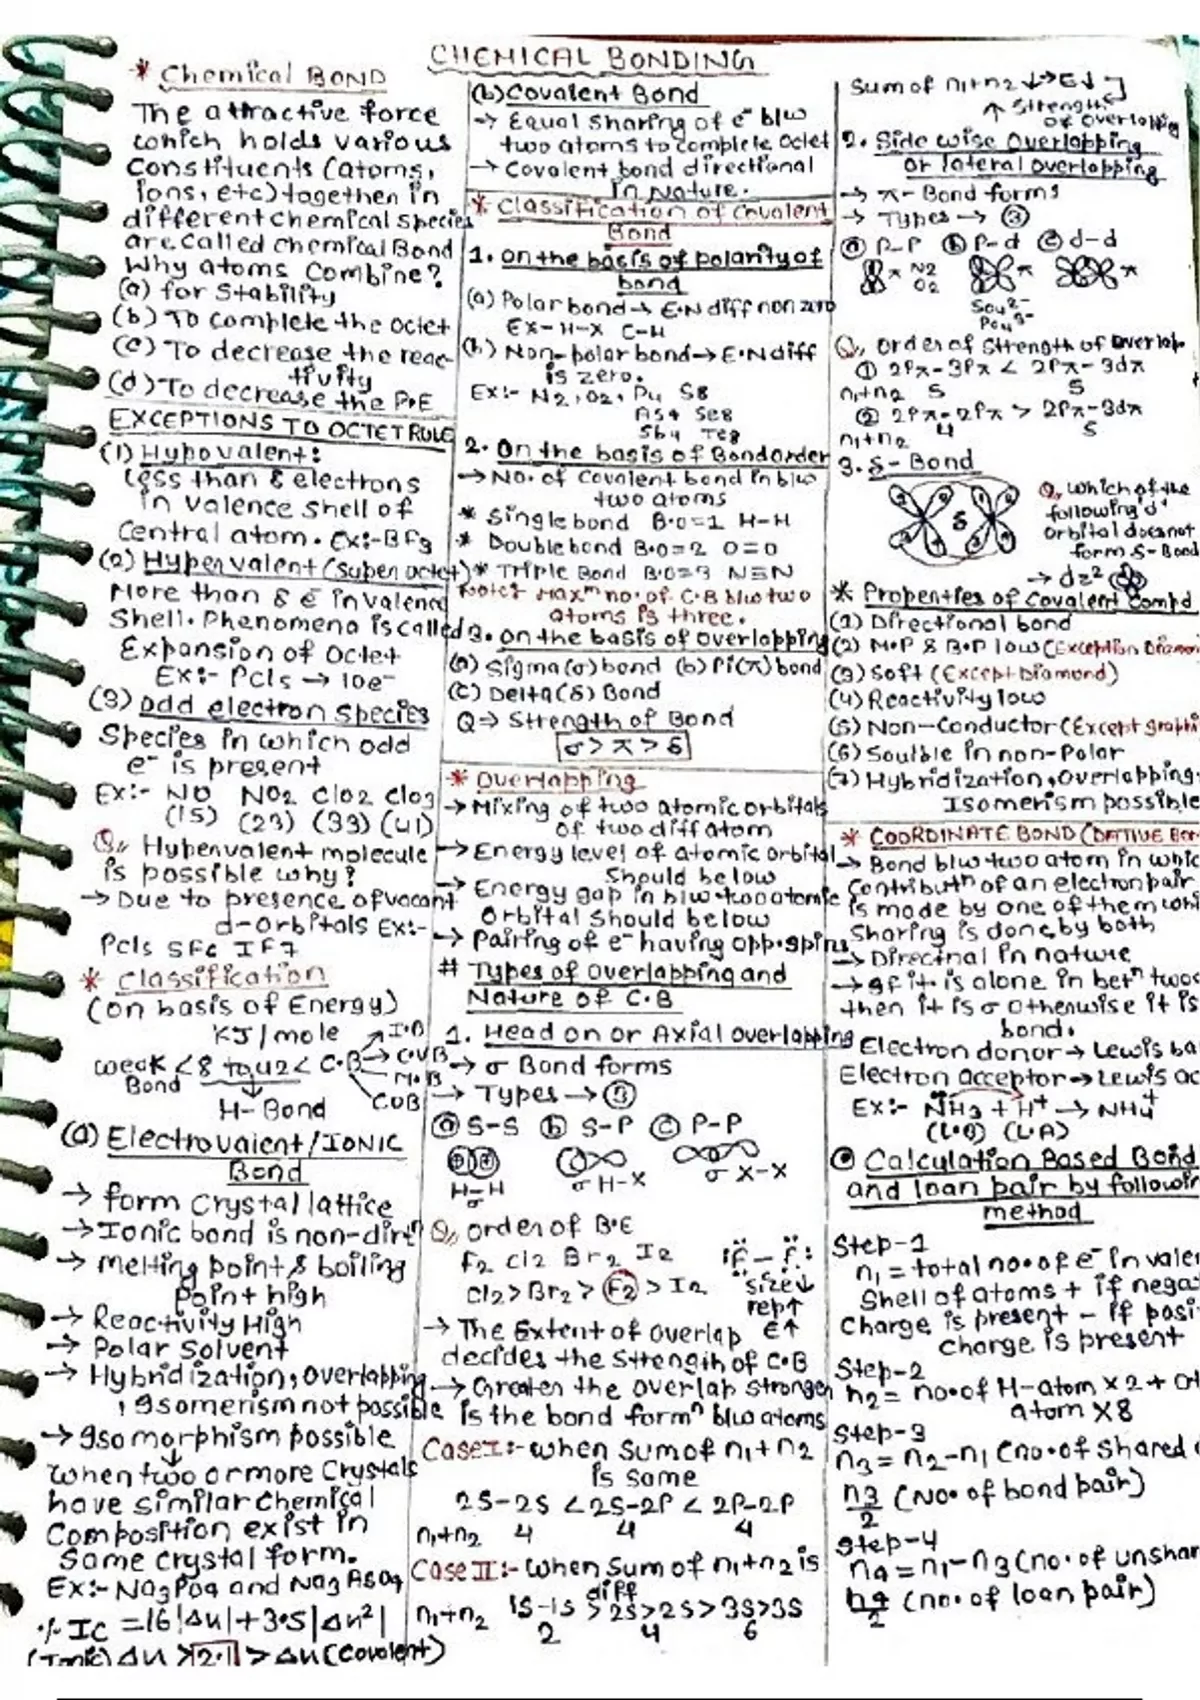 CHEMICAL BONDING
* Chemical BOND
The attractive force
which holds various
Constituents (atoms,
ions, etc) together in
different chemical species
are called chemical Bond
Why atoms combine?
(a) for stability
(b) To complete the octet
(c) To decrease the reac-
tivity
(d) To decrease the P.E
EXCEPTIONS TO OCTET RULE
(1) Hypovalent:
Less than 8 electrons
in valence shell of
Central atom. Ex:- BF3
(2) Hypervalent (super octet)
More than 8 e⁻ in valence
Shell. Phenomena is called
Expansion of octet
Ex:- PCl5 → 10e⁻
(3) odd electron species
Species in which odd
e⁻ is present
Ex:- NO NO2 ClO2 ClO3
(15) (23) (33) (41)
Q, Hypervalent molecule
is possible why?
→ Due to presence of vacant
d-orbitals Ex:-
PCl5 SF6 IF7
* Classification
(on basis of Energy)
KJ/mole
I.B
weak < 8 to 42 < C.B → COV.B
Bond
M.B
COB
H-Bond
(a) Electrovalent/IONIC
Bond
→ form Crystal lattice
→ Ionic bond is non-dirⁿ
→ Melting point & boiling
point high
→ Reactivity High
→ Polar Solvent
→ Hybridization, overlapping
, Isomerism not possible
→ Isomorphism possible
↓
when two or more Crystals
have similar chemical
Composition exist in
Same crystal form.
Ex:- Na3PO4 and Na3AsO4
% IC = 16|Δn| + 3.5|Δn²|
(Ionic) Δn > 2.1 > Δn (covalent)
(b) Covalent Bond
→ Equal sharing of e⁻ b/w
two atoms to complete octet
→ Covalent bond directional
in nature.
* Classification of Covalent
Bond
1. on the basis of polarity of
bond
(a) Polar bond → E.N diff non zero
Ex- H-X C-H
(b) Non-polar bond → E.N diff
is zero.
Ex:- N2, O2, P4 S8
As4 Se8
Sb4 Te8
2. On the basis of Bond order
→ No. of covalent bond in b/w
two atoms
* Single bond B.O=1 H-H
* Double bond B.O=2 O=O
* Triple Bond B.O=3 N≡N
Note: Maxᵐ no. of C.B b/w two
atoms is three.
3. on the basis of overlapping
(a) Sigma (σ) bond (b) Pi (π) bond
(c) Delta (δ) Bond
Q → Strength of Bond
σ > π > δ
* Overlapping
→ Mixing of two atomic orbitals
of two diff atom
→ Energy level of atomic orbital
should be low
→ Energy gap in b/w two atomic
orbital should below
→ Pairing of e⁻ having opp. spins
# Types of overlapping and
Nature of C.B
1. Head on or Axial overlapping
→ σ Bond forms
→ Types → ③
ⓐ S-S ⓑ S-P ⓒ P-P
H-H σ H-X σ X-X
σ
Q, order of B.E
F2 Cl2 Br2 I2
Cl2 > Br2 > F2 > I2
:F̈ - F̈:
size↓
rep↑
E↑
→ The Extent of overlap
decides the strength of C.B
→ Greater the overlap stronger
is the bond formⁿ b/w atoms
Case I:- when sum of n1+n2
is same
2S-2S < 2S-2P < 2P-2P
n1+n2 4 4 4
Case II:- when sum of n1+n2 is
diff
1S-1S > 2S>2S > 3S>3S
n1+n2 2 4 6
Sum of n1+n2 ↓→E↓
↑ Strength
of overlapping
2. Side wise overlapping
or lateral overlapping
→ π-Bond forms
→ Types → ③
ⓐ P-P ⓑ P-d ⓒ d-d
π N2 π π
O2
SO4²⁻
PO4³⁻
Q, order of strength of overlap
① 2Pπ-3Pπ < 2Pπ-3dπ
n1+n2 5 5
② 2Pπ-2Pπ > 2Pπ-3dπ
n1+n2 4 5
3. δ-Bond
δ
Q, which of the
following 'd'
orbital does not
form δ-Bond
→ dz²
* Properties of Covalent Compd
(1) Directional bond
(2) M.P & B.P low (Exception Diamon
(3) Soft (Except Diamond)
(4) Reactivity low
(5) Non-Conductor (Except graphi
(6) Souible in non-Polar
(7) Hybridization, Overlapping,
Isomerism possible
* COORDINATE BOND (DATTIVE Bon
→ Bond b/w two atom in whic
contributⁿ of an electron pair
is made by one of them whi
Sharing is done by both
→ Directinal in nature
→ If it is alone in betⁿ two
then it is σ otherwise it is
bond.
Electron donor → Lewis ba
Electron acceptor → Lewis ac
Ex:- NH3 + H⁺ → NH4⁺
(L.B) (L.A)
Calculation Based Bond
and loan pair by followin
method
Step-1
n1 = total no. of e⁻ in valen
Shell of atoms + if nega
charge is present - if posi
charge is present
Step-2
n2 = no. of H-atom x 2 + ot
atom x 8
Step-3
n3 = n2-n1 (no. of shared
n3/2 (No. of bond pair)
Step-4
n4 = n1-n3 (no. of unshar
n4/2 (no. of loan pair)